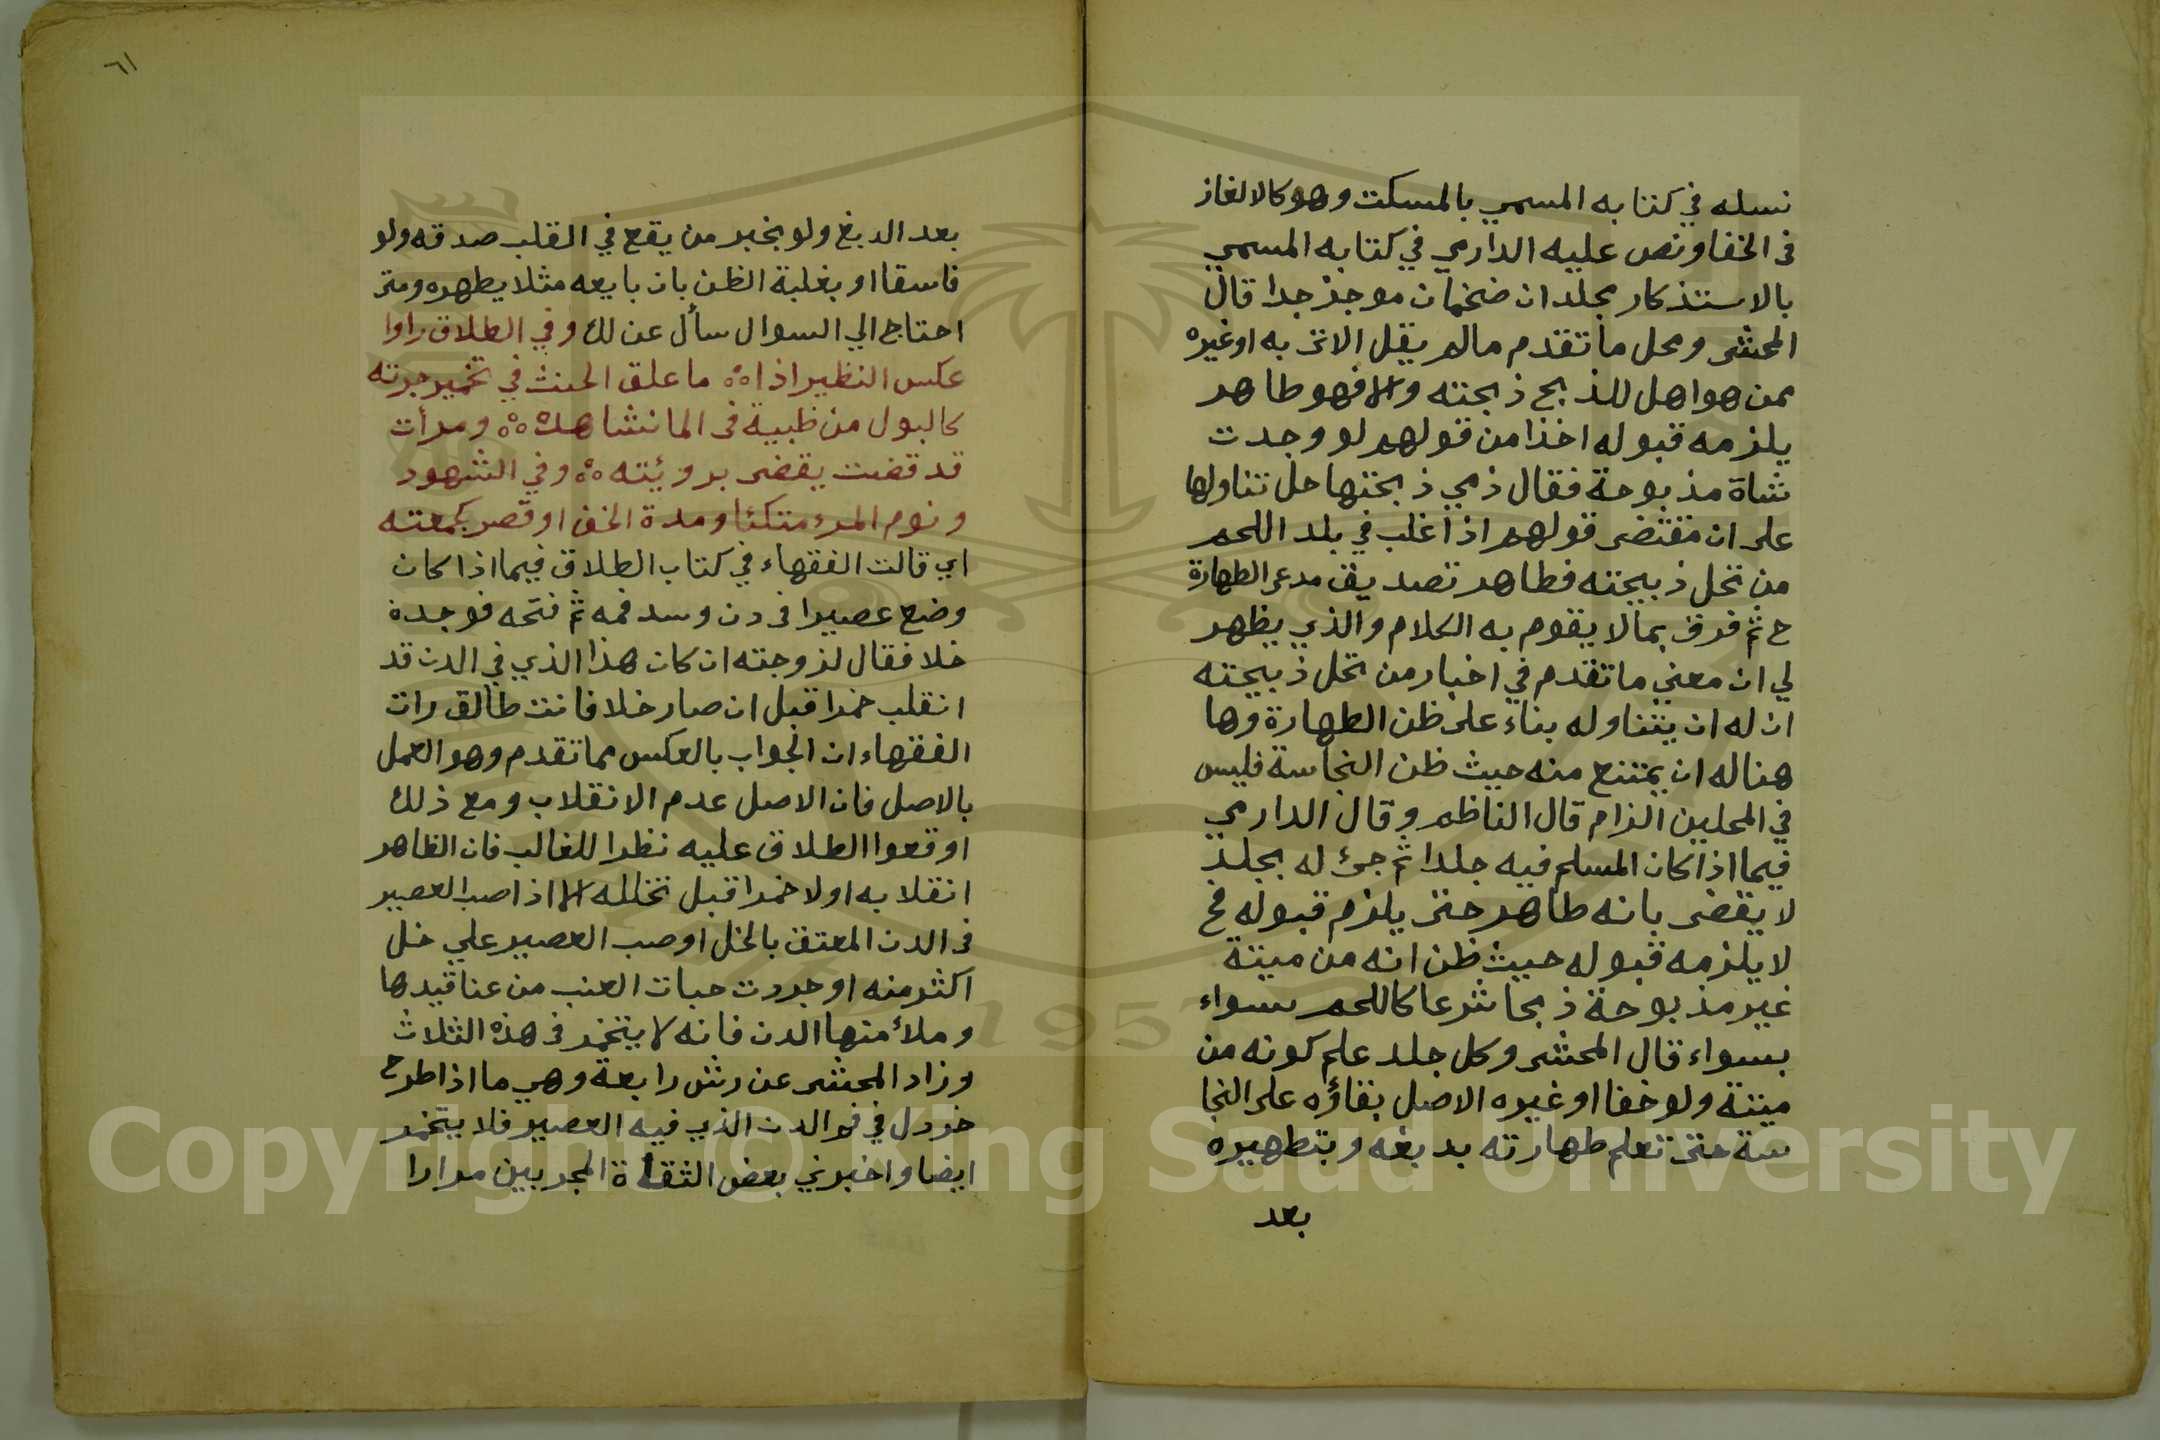 نسله في كتابه المسمي بالمسكت وهو كالالغاز
في الخفا ونص عليه الدارمي في كتابه المسمي
بالاستذكار مجلدان ضخمان موجز جدا قال
المحشى ومحل ما تقدم مالم يقل الاتى به او غيره
ممن هو اهل للذبح ذبحته والا فهو طاهر
يلزمه قبوله اخذا من قولهم لو وجدت
شاة مذبوحة فقال ذمي ذبحتها حل تناولها
على ان مقتضى قولهم اذا غلب في بلد اللحم
من تحل ذبيحته فطاهر تصديق مدعى الطهارة
ح ثم فرق بما لا يقوم به الكلام والذي يظهر
لي ان معني ما تقدم في اخبار من تحل ذبيحته
ان له ان يتناوله بناء على ظن الطهارة وها
هنا له ان يمتنع منه حيث ظن النجاسة فليس
في المحلين الزام قال الناظم وقال الدارمي
فيما اذا كان المسلم فيه جلدا ثم جئ له بجلد
لا يقضى بانه طاهر حتى يلزم قبوله فح
لا يلزمه قبوله حيث ظن انه من ميتة
غير مذبوحة ذبحا شرعا كاللحم سواء
بسواء قال المحشى وكل جلد علم كونه من
ميتة ولو خفا او غيره الاصل بقاؤه على النجا
سة حتى تعلم طهارته بدبغه وبتطهيره
بعد
٦١
بعد الدبغ ولو بخبر من يقع في القلب صدقه ولو
فاسقا او بغلبة الظن بان بايعه مثلا يطهره ومتى
احتاج الي السوال سأل عن لك وفي الطلاق راوا
عكس النظير اذا ؞ ما علق الحنث في تخمير جرته
كالبول من ظبية فى الما نشاهده ؞ ومرأت
قد قضت يقضى برويئته ؞ وفي الشهود
ونوم المرء متكئا ومدة الخف او قصر كجمعته
اي قالت الفقهاء في كتاب الطلاق فيما اذا كان
وضع عصيرا فى دن وسد فمه ثم فتحه فوجدة
خلا فقال لزوجته ان كان هذا الذي في الدن قد
انقلب خمرا قبل ان صار خلا فانت طالق رات
الفقهاء ان الجواب بالعكس مما تقدم وهو العمل
بالاصل فان الاصل عدم الانقلاب ومع ذلك
اوقعوا الطلاق عليه نظرا للغالب فان الظاهر
انقلابه اولا خمرا قبل تخلله الا اذا صب العصير
فى الدن المعتق بالخل او صب العصير علي خل
اكثر منه او جردت حبات العنب من عناقيدها
وملأ منها الدن فانه لا يتخمر فى هذه الثلاث
وزاد المحشى عن رابعة وهي ما اذا طرح
خردل في فم الدن الذي فيه العصير فلا يتخمر
ايضا واخبرني بعض الثقاة المجربين مرارا
Copyright © King Saud University
1957